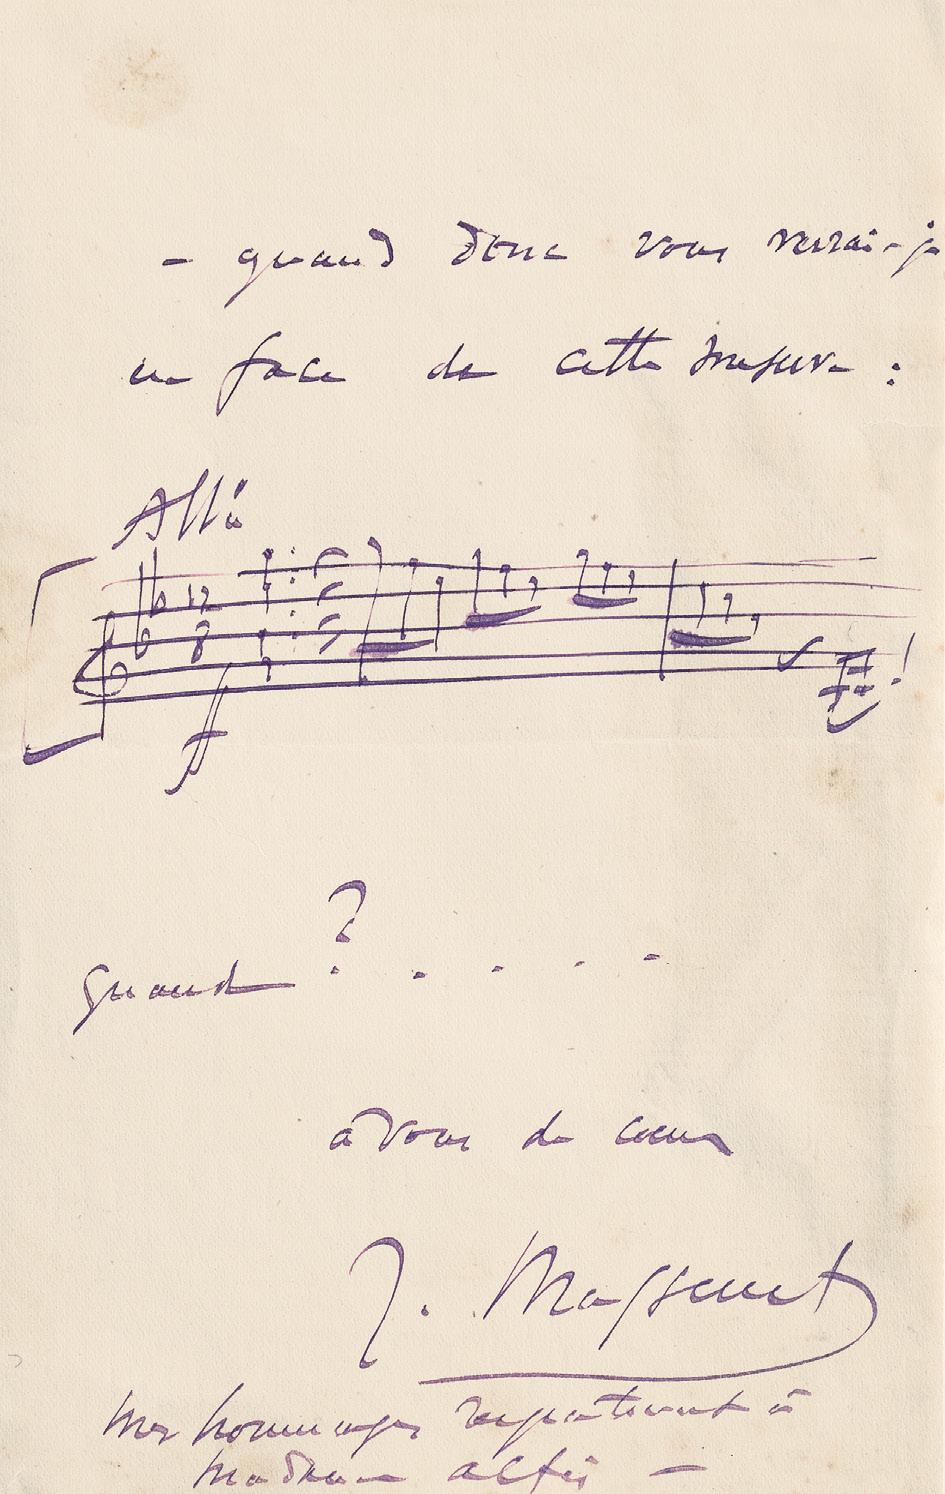 - quand donc vous verrai-je
en face de cette mesure :
All°
12
8
f
!
?
quand . . . .
à vous de cœur
J. Massenet
Mes hommages respectueux à
Madame